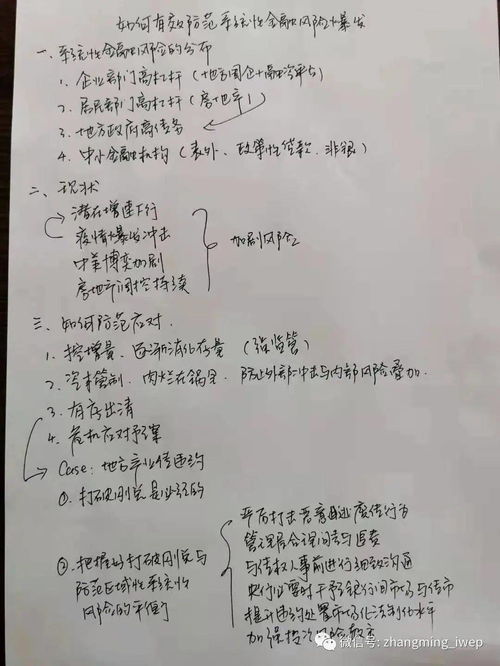 如何有效防范系统性金融风险爆发
一、系统性金融风险的分布
1. 企业部门高杠杆（地方国企+融资平台）
2. 居民部门高杠杆（房地产）
3. 地方政府高债务
4. 中小金融机构（表外、政策性贷款、非银）
二、现状
潜在增速下行
疫情爆发冲击
中美博弈加剧
房地产调控持续
加剧风险
三、如何防范应对.
1. 控增量，逐渐消化存量（强监管）
2. 资本管制，肉烂在锅里，防止外部冲击与内部风险叠加.
3. 有序出清
4. 危机应对预案
Case：地方产业债违约
①. 打破刚兑是必经的
②. 把握好打破刚兑与
防范区域性系统性
风险的平衡
严厉打击恶意逃废债行为
管理层合理问责与追责
与债权人事前进行细致沟通
央行必要时干预银行间市场与债市
提升违约处置市场化法制化水平
加强投资风险教育
微信号: zhangming_iwep